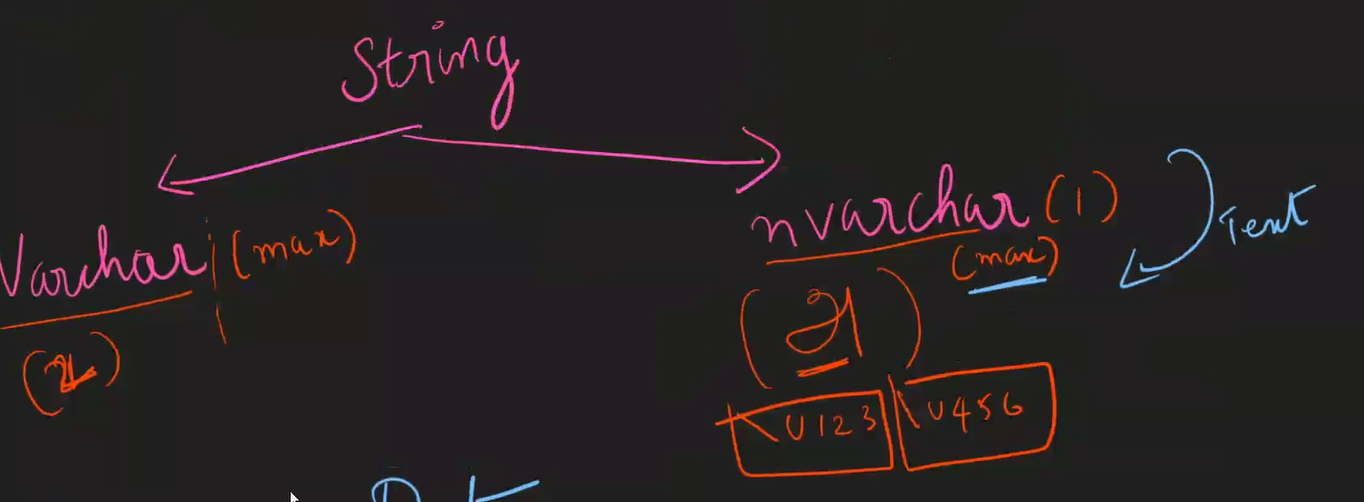 String
Varchar (max)
nvarchar (1)
(max)
Text
(அ)
\U123 \U456